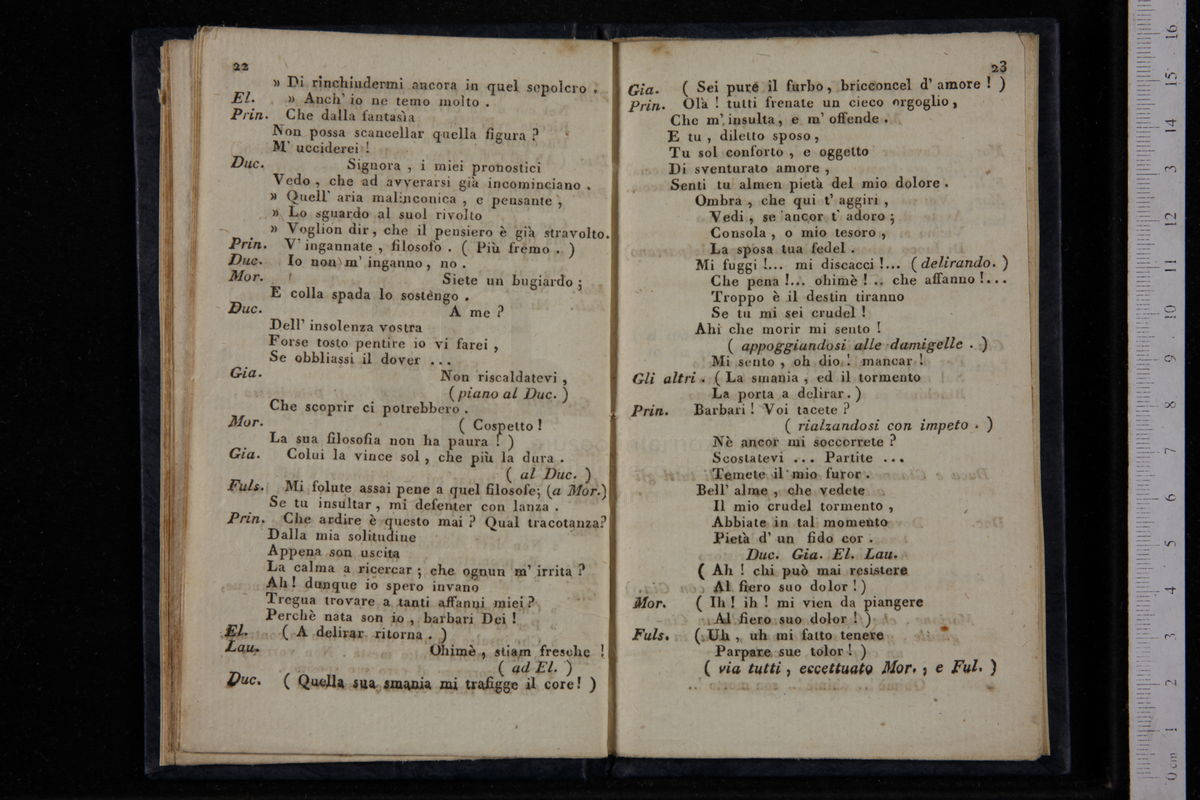 22
» Di rinchiudermi ancora in quel sepolcro .
El. » Anch' io ne temo molto .
Prin. Che dalla fantasìa
Non possa scancellar quella figura ?
M' ucciderei !
Duc. Signora , i miei pronostici
Vedo , che ad avverarsi già incominciano .
» Quell' aria malinconica , e pensante ,
» Lo sguardo al suol rivolto
» Voglion dir, che il pensiero è già stravolto.
Prin. V' ingannate , filosofo . ( Più fremo . )
Duc. Io non m' inganno, no .
Mor. Siete un bugiardo ;
E colla spada lo sostengo .
Duc. A me ?
Dell' insolenza vostra
Forse tosto pentire io vi farei ,
Se obbliassi il dover ...
Gia. Non riscaldatevi ,
( piano al Duc. )
Che scoprir ci potrebbero .
Mor. ( Cospetto !
La sua filosofia non ha paura ! )
Gia. Colui la vince sol , che più la dura .
( al Duc. )
Fuls. Mi folute assai pene a quel filosofe; (a Mor.)
Se tu insultar , mi defenter con lanza .
Prin. Che ardire è questo mai ? Qual tracotanza?
Dalla mia solitudine
Appena son uscita
La calma a ricercar ; che ognun m' irrita ?
Ah ! dunque io spero invano
Tregua trovare a tanti affanni miei ?
Perchè nata son io , barbari Dei !
El. ( A delirar ritorna . )
Lau. Ohimè , stiam fresche !
( ad El. )
Duc. ( Quella sua smania mi trafigge il core! )
23
Gia. ( Sei pure il furbo , bricconcel d' amore ! )
Prin. Olà ! tutti frenate un cieco orgoglio ,
Che m' insulta, e m' offende .
E tu , diletto sposo ,
Tu sol conforto , e oggetto
Di sventurato amore ,
Senti tu almen pietà del mio dolore .
Ombra , che qui t' aggiri ,
Vedi , se ancor t' adoro ;
Consola , o mio tesoro ,
La sposa tua fedel .
Mi fuggi !... mi discacci !... ( delirando. )
Che pena !... ohimè ! .. che affanno !...
Troppo è il destin tiranno
Se tu mi sei crudel !
Ahi che morir mi sento !
( appoggiandosi alle damigelle . )
Mi sento , oh dio ! mancar !
Gli altri . ( La smania , ed il tormento
La porta a delirar. )
Prin. Barbari ! Voi tacete ?
( rialzandosi con impeto . )
Nè ancor mi soccorrete ?
Scostatevi ... Partite ...
Temete il mio furor .
Bell' alme , che vedete
Il mio crudel tormento ,
Abbiate in tal momento
Pietà d' un fido cor .
Duc. Gia. El. Lau.
( Ah ! chi può mai resistere
Al fiero suo dolor ! )
Mor. ( Ih ! ih ! mi vien da piangere
Al fiero suo dolor ! )
Fuls. ( Uh , uh mi fatto tenere
Parpare sue tolor ! )
( via tutti , eccettuato Mor. , e Ful. )
0 cm 1 2 3 4 5 6 7 8 9 10 11 12 13 14 15 16